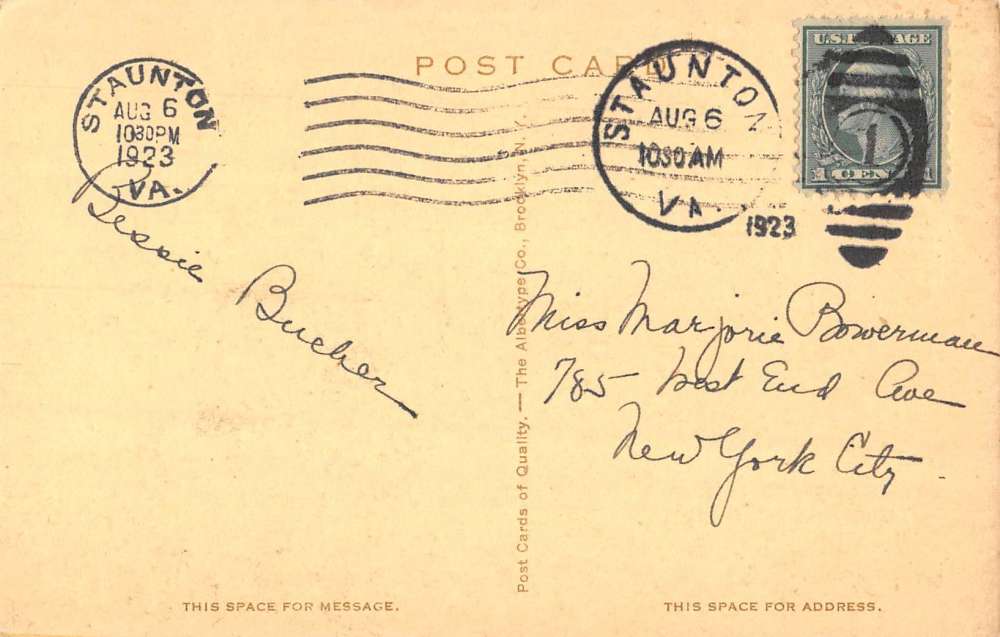 POST CARD
STAUNTON
AUG 6
1030PM
1923
VA.
STAUNTON
AUG 6
1030AM
VA.
1923
U.S. POSTAGE
1
Bessie Bucher
Miss Marjorie Bowerman
785 West End Ave
New York City
Post Cards of Quality. — The Albertype Co., Brooklyn, N. Y.
THIS SPACE FOR MESSAGE.
THIS SPACE FOR ADDRESS.